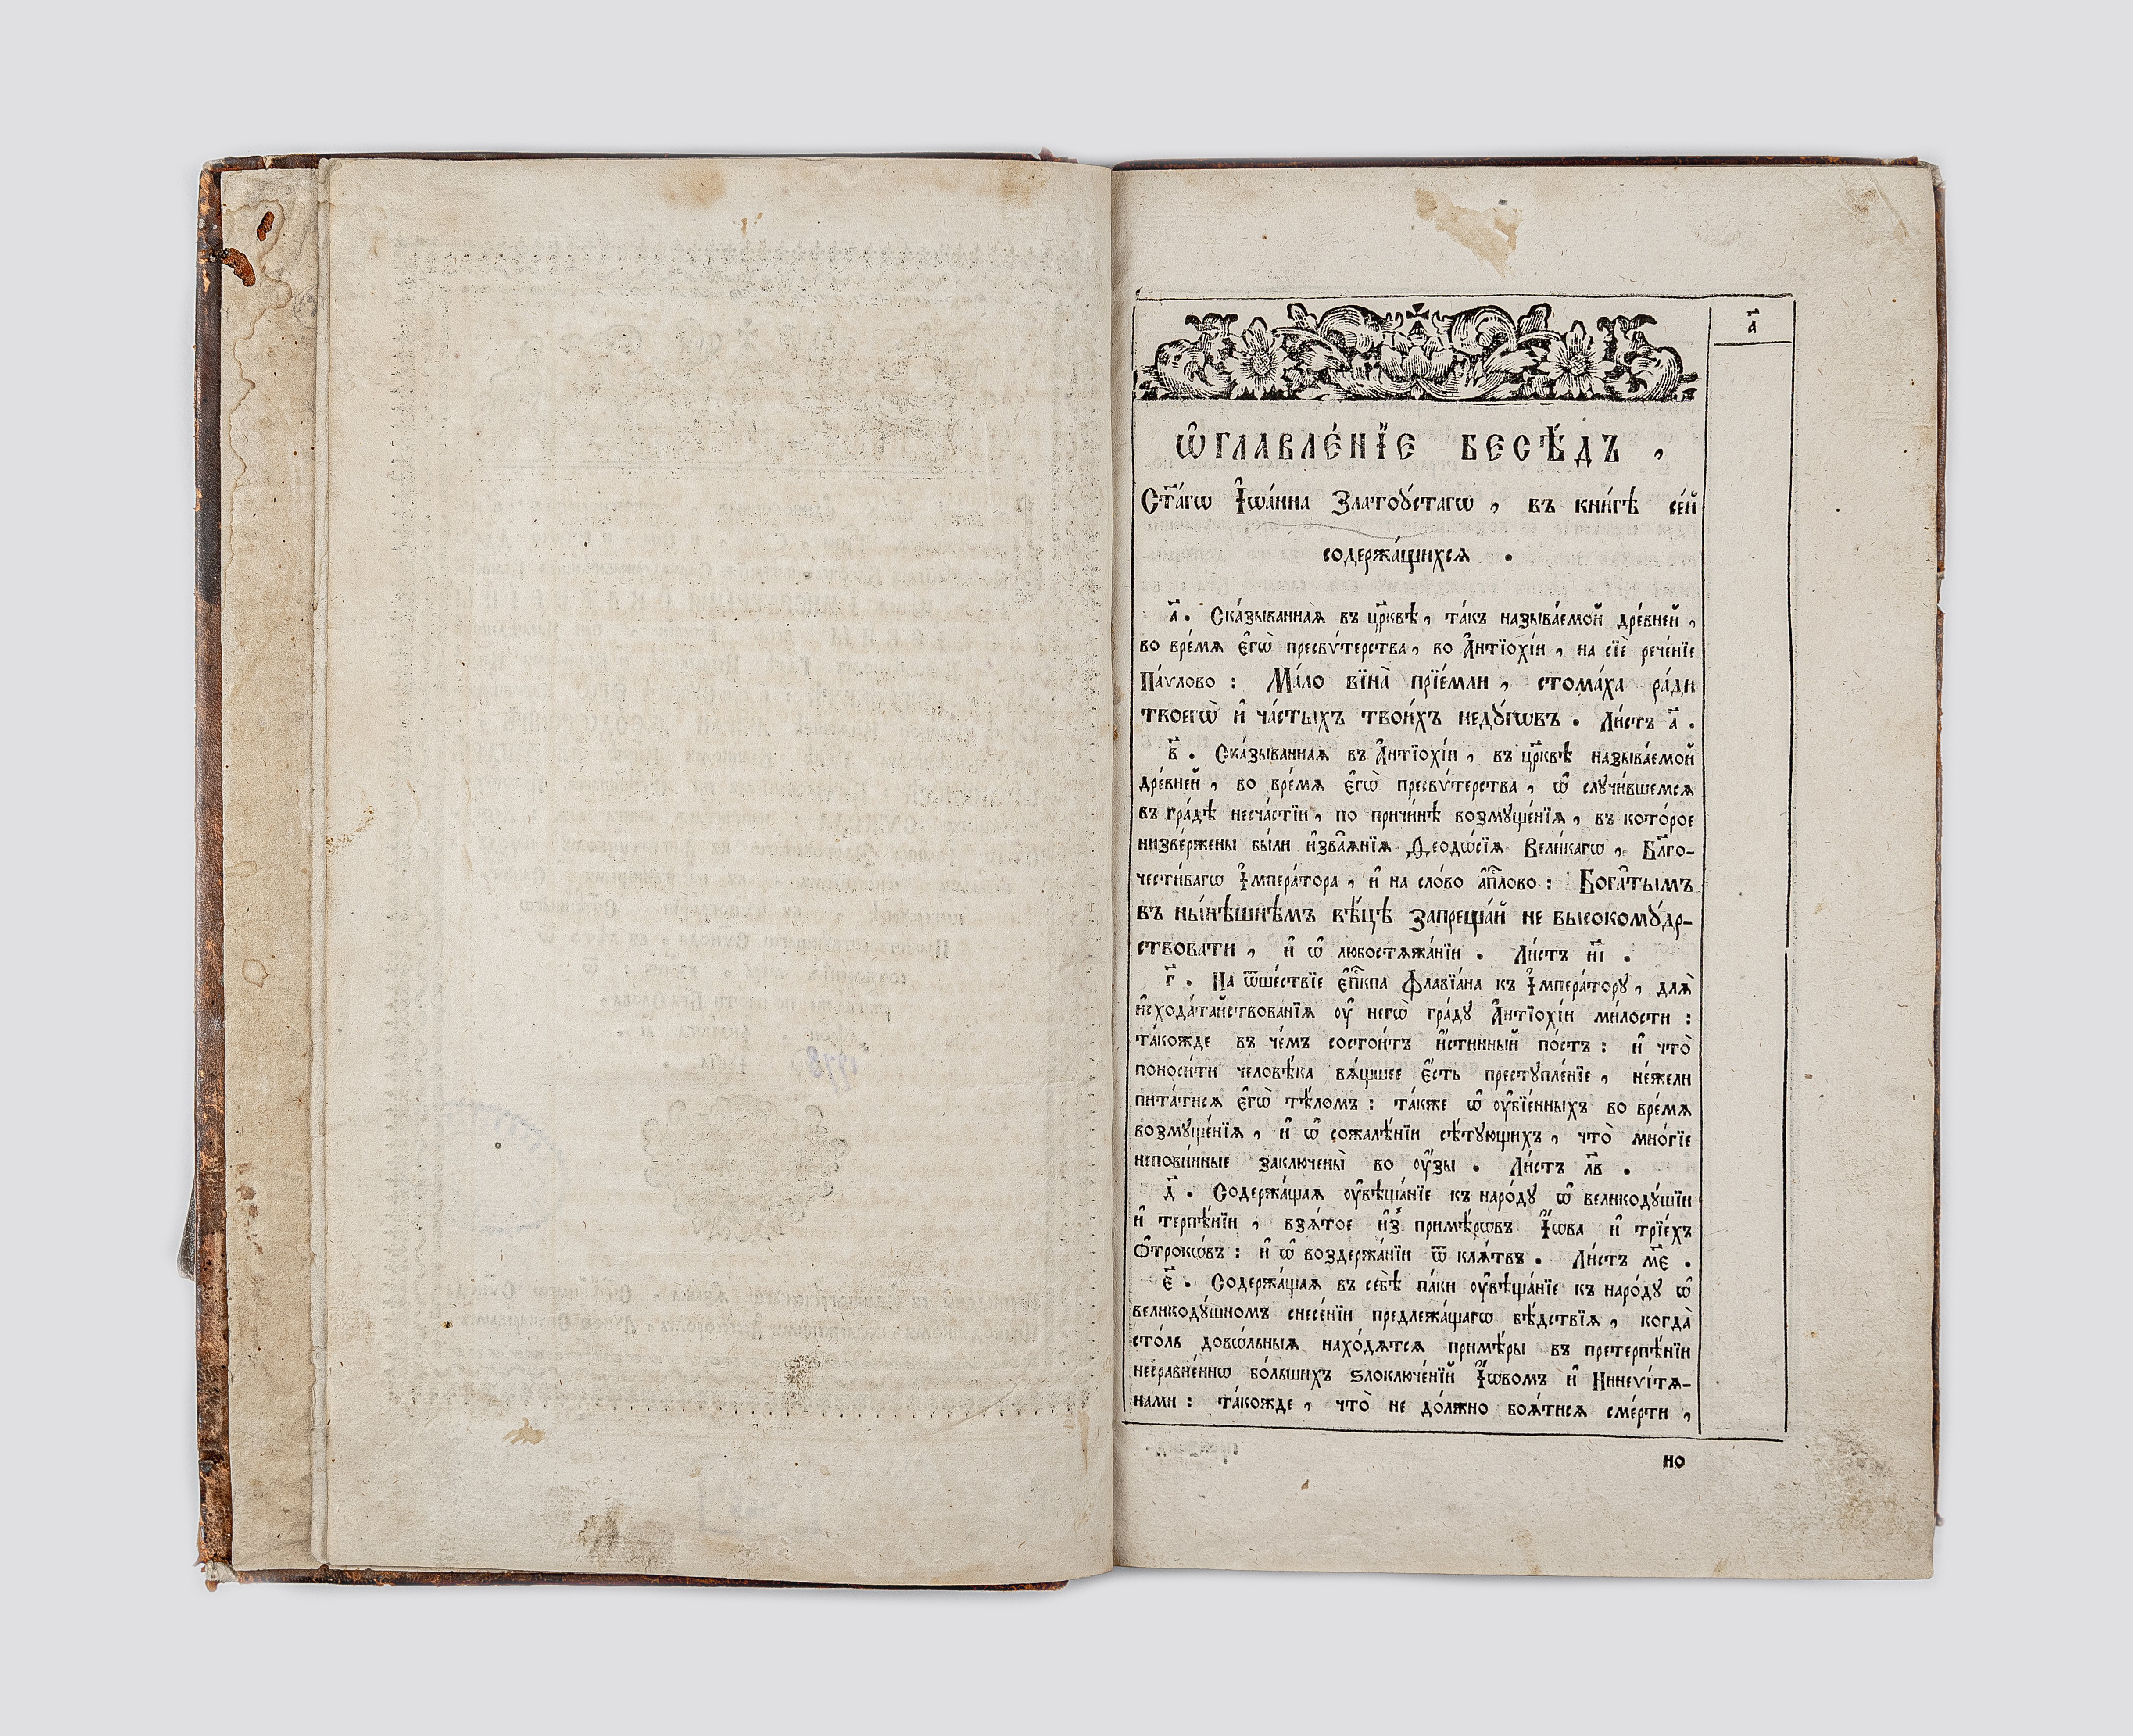 а҃
Ѡ҆ГЛАВЛЕ́НЇЕ БЕСѢ́ДЪ ,
Ст҃а́гѡ І҆ѡа́нна Златоꙋ́стагѡ , въ кни́гѣ се́й
содержа́щихсѧ .
а҃ . Ска́зываннаѧ въ цр҃квѣ , та́къ называ́емой дре́вней ,
во вре́мѧ є҆гѡ̀ пресвѵ́терства , во А҆нтїохі́и , на сїѐ рече́нїе
Па́ѵлово : Ма́ло вїна̀ прїе́мли , стома́ха ра́ди
твоегѡ̀ и҆ ча́стыхъ твои́хъ недꙋ́гѡвъ . Ли́стъ а҃ .
в҃ . Ска́зываннаѧ въ А҆нтїохі́и , въ цр҃квѣ называ́емой
дре́вней , во вре́мѧ є҆гѡ̀ пресвѵ́терства , ѡ҆ случи́вшемсѧ
въ гра́дѣ несча́стїи , по причи́нѣ возмуще́нїѧ , въ кото́рое
низве́ржены бы́ли и҆зваѧ́нїѧ Ѳеодѡ́сїѧ Вели́кагѡ , Бл҃го-
чести́вагѡ І҆мпера́тора , и҆ на сло́во а҆п҃лово : Бога̑тымъ
въ ны́нѣшнѣмъ вѣ́цѣ запреща́й не высокомꙋ́др-
ствовати , и҆ ѡ҆ любостѧжа́нїи . Ли́стъ и҃і .
г҃ . На ѿше́ствїе є҆п҃кпа Флавїа́на къ І҆мпера́тору , длѧ̀
и҆схода́тайствованїѧ ᲂу҆ негѡ̀ гра́ду А҆нтїохі́и ми́лости :
та́кожде въ че́мъ состои́тъ и҆́стинный по́стъ : и҆ что̀
поноси́ти человѣ́ка вѧ́щшее є҆́сть преступле́нїе , не́жели
пита́тисѧ є҆гѡ̀ тѣ́ломъ : та́кже ѡ҆ ᲂу҆бїе́нныхъ во вре́мѧ
возмуще́нїѧ , и҆ ѡ҆ сожалѣ́нїи сѣ́тующихъ , что̀ мно́гїе
непови́нные заключены̀ во ᲂу҆́зы . Ли́стъ л҃в .
д҃ . Содержа́щаѧ ᲂу҆вѣща́нїе къ наро́ду ѡ҆ великодꙋ́шїи
и҆ терпѣ́нїи , взѧ́тое и҆з̾ примѣ́рѡвъ І҆́ѡва и҆ трїе́хъ
Ѻ҆́трокѡвъ : и҆ ѡ҆ воздержа́нїи ѿ клѧ́твъ . Ли́стъ м҃є .
є҃ . Содержа́щаѧ въ себѣ̀ па́ки ᲂу҆вѣща́нїе къ наро́ду ѡ҆
великодꙋ́шномъ снесе́нїи предлежа́щагѡ бѣ́дствїѧ , когда̀
сто́ль дово́льныѧ нахо́дѧтсѧ примѣ́ры въ претерпѣ́нїи
несравне́ннѡ бо́льшихъ ѕлоключе́нїй І҆́ѡвомъ и҆ Нинеѵі́тѧ-
нами : та́кожде , что̀ не до́лжно боѧ́тисѧ сме́рти ,
но